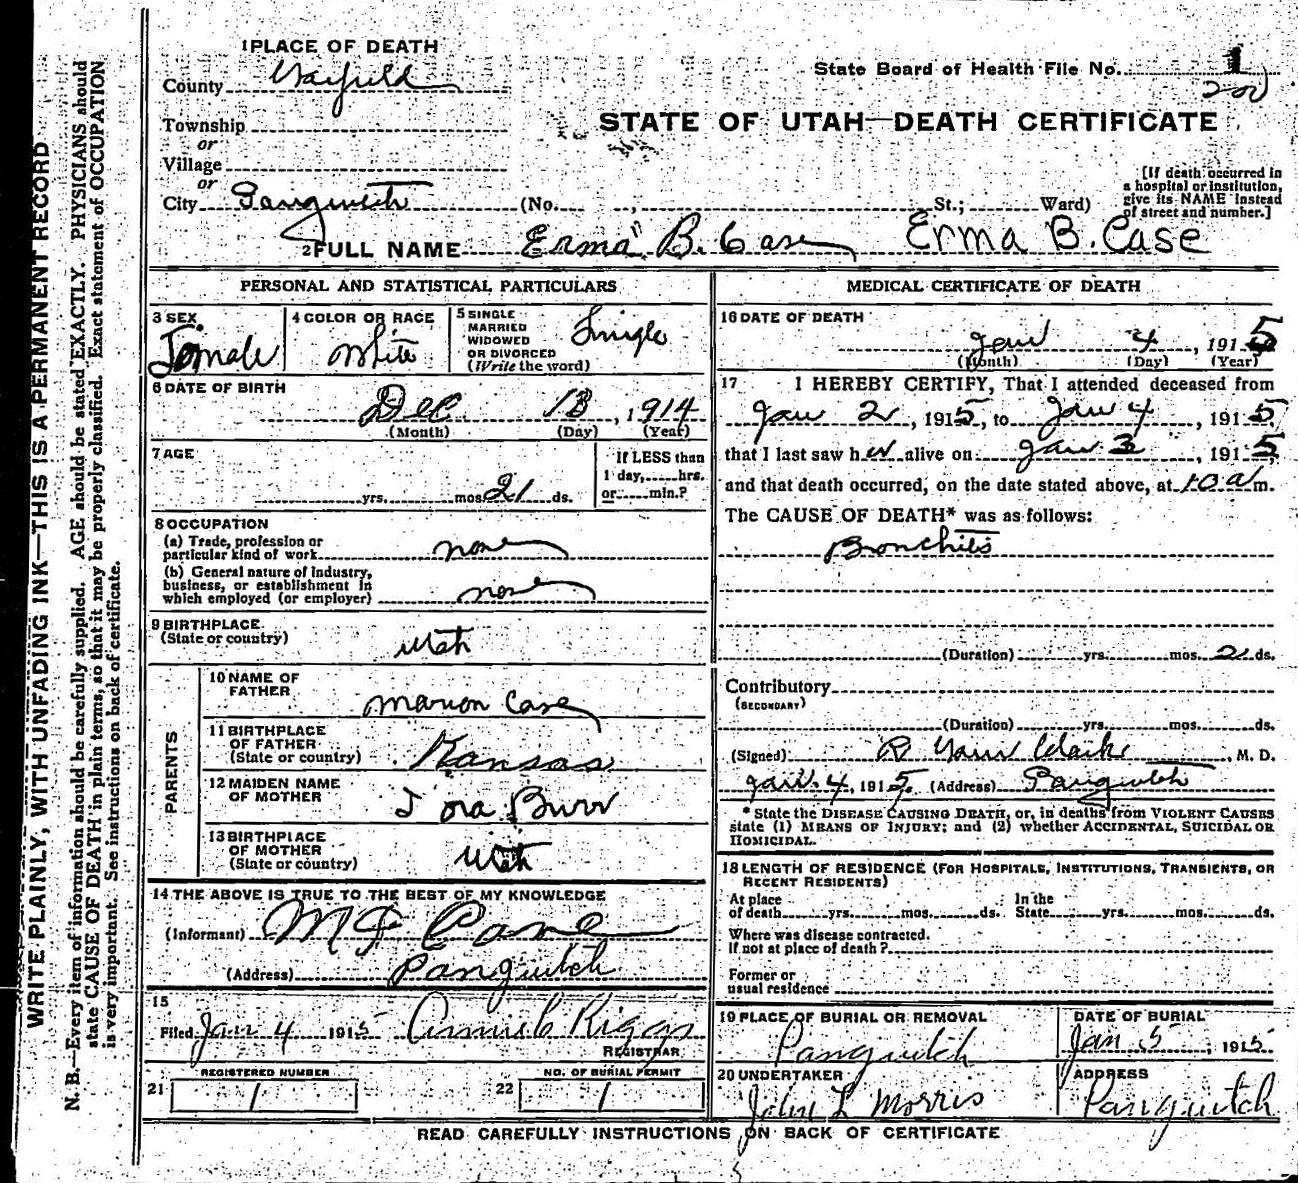 WRITE PLAINLY, WITH UNFADING INK—THIS IS A PERMANENT RECORD
N. B.—Every item of information should be carefully supplied. AGE should be stated EXACTLY. PHYSICIANS should
state CAUSE OF DEATH in plain terms, so that it may be properly classified. Exact statement of OCCUPATION
is very important. See instructions on back of certificate.
1 PLACE OF DEATH
County Garfield
State Board of Health File No. 1
200
Township
or
Village
or
City Panguitch (No. , St.; Ward)
STATE OF UTAH—DEATH CERTIFICATE
[If death occurred in
a hospital or institution,
give its NAME instead
of street and number.]
2 FULL NAME Erma B. Case Erma B. Case
PERSONAL AND STATISTICAL PARTICULARS
3 SEX
Female
4 COLOR OR RACE
White
5 SINGLE
MARRIED
WIDOWED
OR DIVORCED
(Write the word)
Single
6 DATE OF BIRTH
Dec 13, 1914
(Month) (Day) (Year)
7 AGE
yrs. mos. 21 ds.
If LESS than
1 day, hrs.
or min.?
8 OCCUPATION
(a) Trade, profession or
particular kind of work none
(b) General nature of industry,
business, or establishment in
which employed (or employer) none
9 BIRTHPLACE
(State or country)
Utah
PARENTS
10 NAME OF
FATHER
Marion Case
11 BIRTHPLACE
OF FATHER
(State or country) Kansas
12 MAIDEN NAME
OF MOTHER
Burr
13 BIRTHPLACE
OF MOTHER
(State or country)
Utah
14 THE ABOVE IS TRUE TO THE BEST OF MY KNOWLEDGE
(Informant) M F Case
(Address) Panguitch
15
Filed Jan 4 1915 Riggs
REGISTRAR
REGISTERED NUMBER
21 1
NO. OF BURIAL PERMIT
22 1
MEDICAL CERTIFICATE OF DEATH
16 DATE OF DEATH
Jan 4, 1915
(Month) (Day) (Year)
17 I HEREBY CERTIFY, That I attended deceased from
Jan 2, 1915, to Jan 4, 1915,
that I last saw her alive on Jan 3, 1915,
and that death occurred, on the date stated above, at 10 a m.
The CAUSE OF DEATH* was as follows:
Bronchitis
(Duration) yrs. mos. 2 ds.
Contributory
(SECONDARY)
(Duration) yrs. mos. ds.
(Signed) R Clark, M. D.
Jan. 4, 1915. (Address) Panguitch
* State the DISEASE CAUSING DEATH, or, in deaths from VIOLENT CAUSES
state (1) MEANS OF INJURY; and (2) whether ACCIDENTAL, SUICIDAL OR
HOMICIDAL.
18 LENGTH OF RESIDENCE (FOR HOSPITALS, INSTITUTIONS, TRANSIENTS, OR
RECENT RESIDENTS)
At place
of death yrs. mos. ds.
In the
State yrs. mos. ds.
Where was disease contracted.
If not at place of death?
Former or
usual residence
19 PLACE OF BURIAL OR REMOVAL
Panguitch
DATE OF BURIAL
Jan 5, 1915.
20 UNDERTAKER
John L Morris
ADDRESS
Panguitch
READ CAREFULLY INSTRUCTIONS ON BACK OF CERTIFICATE